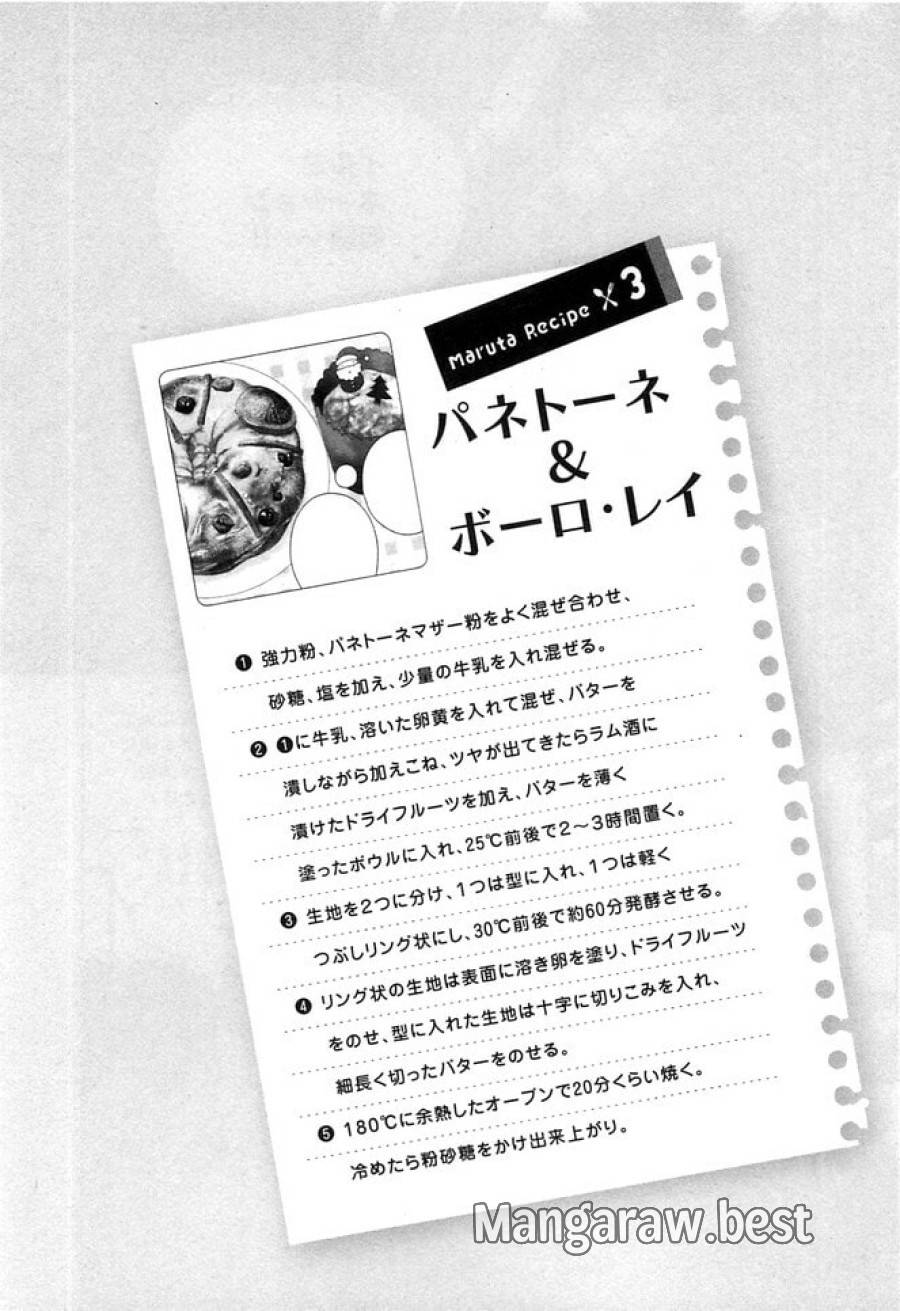 Maruta Recipe 3
パネトーネ
&
ボーロ・レイ
❶ 強力粉、パネトーネマザー粉をよく混ぜ合わせ、
砂糖、塩を加え、少量の牛乳を入れ混ぜる。
❷ ❶に牛乳、溶いた卵黄を入れて混ぜ、バターを
潰しながら加えこね、ツヤが出てきたらラム酒に
漬けたドライフルーツを加え、バターを薄く
塗ったボウルに入れ、25℃前後で2〜3時間置く。
❸ 生地を2つに分け、1つは型に入れ、1つは軽く
つぶしリング状にし、30℃前後で約60分発酵させる。
❹ リング状の生地は表面に溶き卵を塗り、ドライフルーツ
をのせ、型に入れた生地は十字に切りこみを入れ、
細長く切ったバターをのせる。
❺ 180℃に余熱したオーブンで20分くらい焼く。
冷めたら粉砂糖をかけ出来上がり。
Mangaraw.best